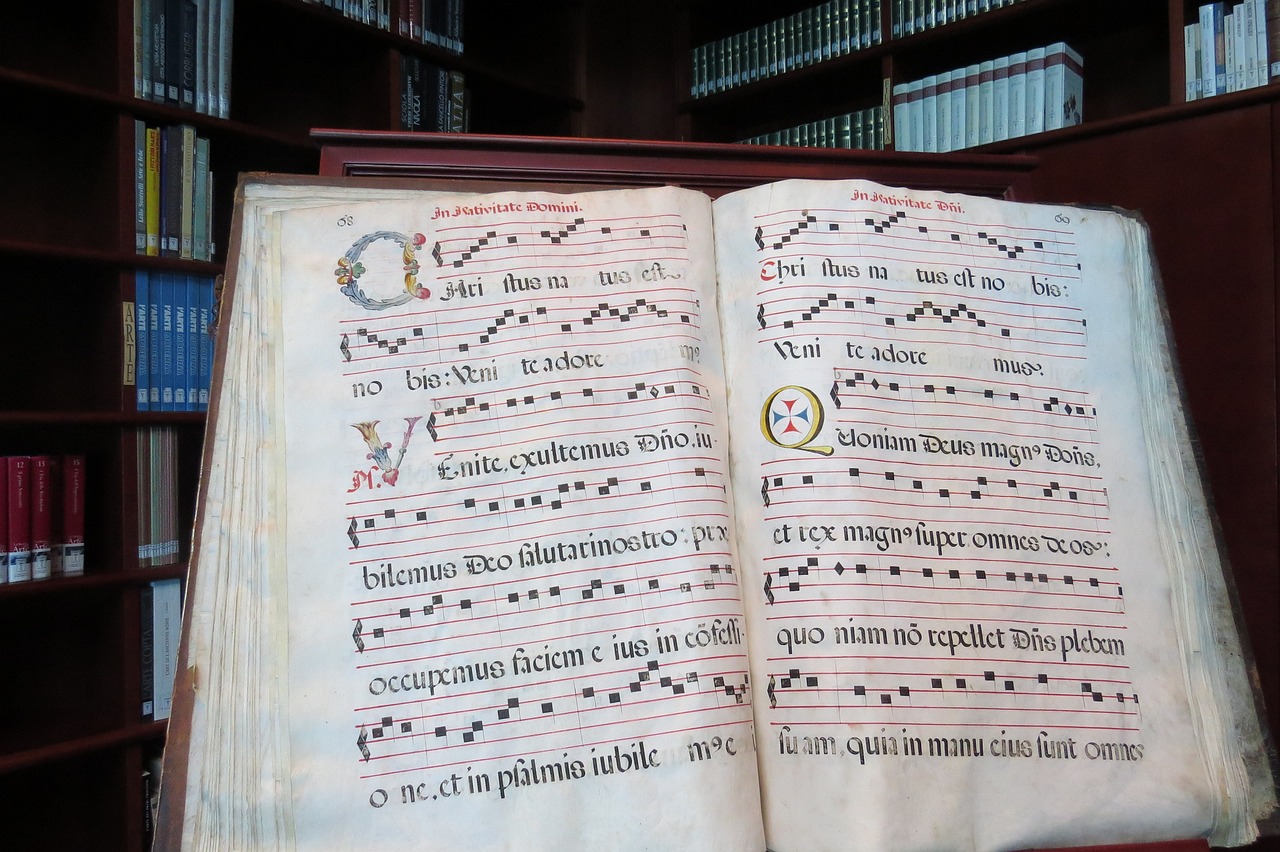 68
In Nativitate Domini.
CHri stus na tus est
no bis: Veni te adore m9
Ps. VEnite, exultemus Dño. iu-
bilemus Deo salutarinostro: præ
occupemus faciem e ius in cõfessi-
o ne, et in psalmis iubile m9 e
69
In Nativitate Dñi.
Chri stus na tus est no bis:
Veni te adore mus.
Quoniam Deus magn9 Doñs,
et rex magn9 super omnes deos:
quo niam nõ repellet Dñs plebem
su am, quia in manu eius sunt omnes
ARTE
L'ARTE
L'ARTE
L'ARTE
L'ARTE
L'ARTE